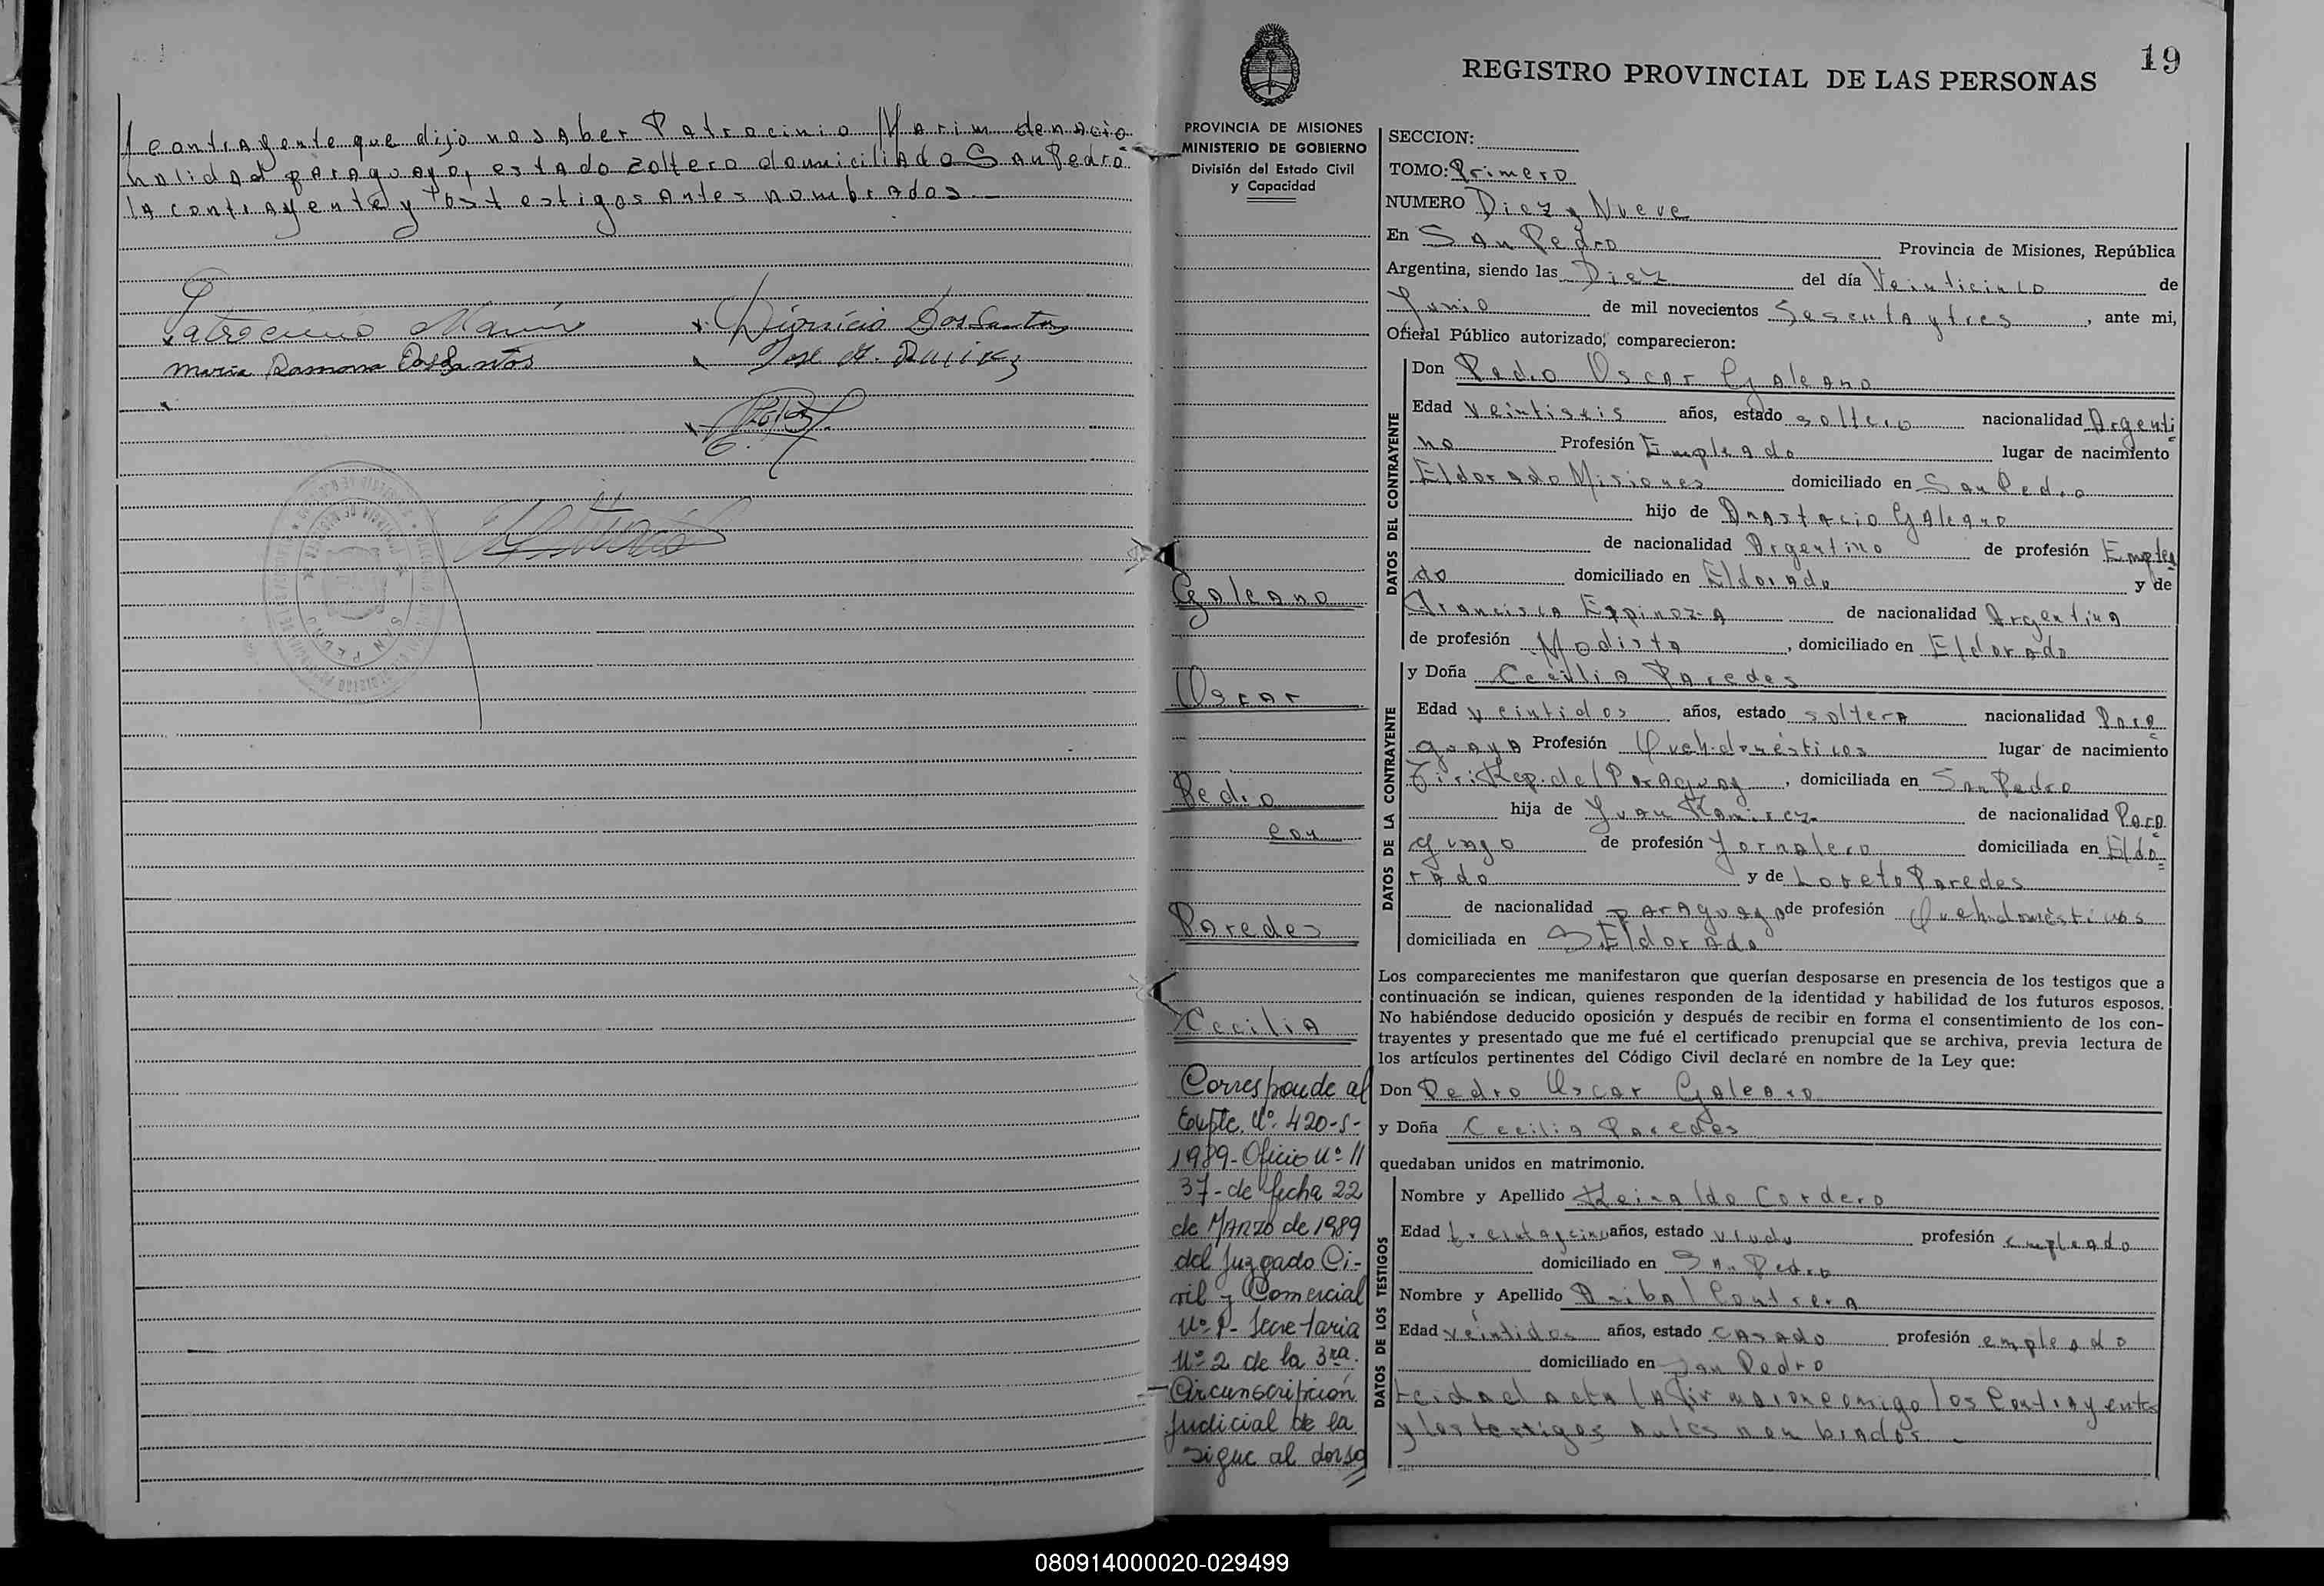 contrayente que dijo no saber Patrocinio Marim de nacio
nalidad paraguayo, estado zoltero domiciliado San Pedro
la contrayente y los testigos antes nombrados.—
Patrocinio Marin
Dionicio Dos Santos
Maria Ramona Dos Santos
SAN PEDRO
19
REGISTRO PROVINCIAL DE LAS PERSONAS
PROVINCIA DE MISIONES
MINISTERIO DE GOBIERNO
División del Estado Civil
y Capacidad
Galeano
Oscar
Pedro
con
Paredes
Cecilia
Corresponde al
Expte. Nº 420-S-
1989- Oficio Nº 11
37- de fecha 22
de Marzo de 1989
del Juzgado Ci-
vil y Comercial
Secretaria
Nº 2 de la 3ra.
Circunscripción
Judicial de la
Sigue al dorso
SECCION:
TOMO: Primero
NUMERO Diez y Nueve
En San Pedro Provincia de Misiones, República
Argentina, siendo las Diez del día Veinticinco de
Junio de mil novecientos Sesenta y tres, ante mi,
Oficial Público autorizado, comparecieron:
DATOS DEL CONTRAYENTE
Don Pedro Oscar Galeano
Edad Veintiseis años, estado soltero nacionalidad Argenti
no Profesión Empleado lugar de nacimiento
Eldorado Misiones domiciliado en San Pedro
hijo de Anastacio Galeano
de nacionalidad Argentino de profesión Emplea
do domiciliado en Eldorado y de
Francisca Espinoza de nacionalidad Argentina
de profesión Modista, domiciliado en Eldorado
DATOS DE LA CONTRAYENTE
y Doña Cecilia Paredes
Edad veintidos años, estado soltera nacionalidad Para
guaya Profesión Queh. domésticos lugar de nacimiento
Rep. del Paraguay, domiciliada en San Pedro
hija de Juan Ramirez de nacionalidad Para
guayo de profesión Jornalero domiciliada en Eldo
rado y de Loreto Paredes
de nacionalidad paraguaya de profesión Queh. domésticos
domiciliada en Eldorado
Los comparecientes me manifestaron que querían desposarse en presencia de los testigos que a
continuación se indican, quienes responden de la identidad y habilidad de los futuros esposos.
No habiéndose deducido oposición y después de recibir en forma el consentimiento de los con-
trayentes y presentado que me fué el certificado prenupcial que se archiva, previa lectura de
los artículos pertinentes del Código Civil declaré en nombre de la Ley que:
Don Pedro Oscar Galeano
y Doña Cecilia Paredes
quedaban unidos en matrimonio.
DATOS DE LOS TESTIGOS
Nombre y Apellido Reinaldo Cordero
Edad treintaycinco años, estado viudo profesión empleado
domiciliado en San Pedro
Nombre y Apellido Anibal Contrera
Edad veintidos años, estado casado profesión empleado
domiciliado en San Pedro
Leida el acta la firmaron conmigo los Contrayentes
y los testigos antes nombrados.—
080914000020-029499